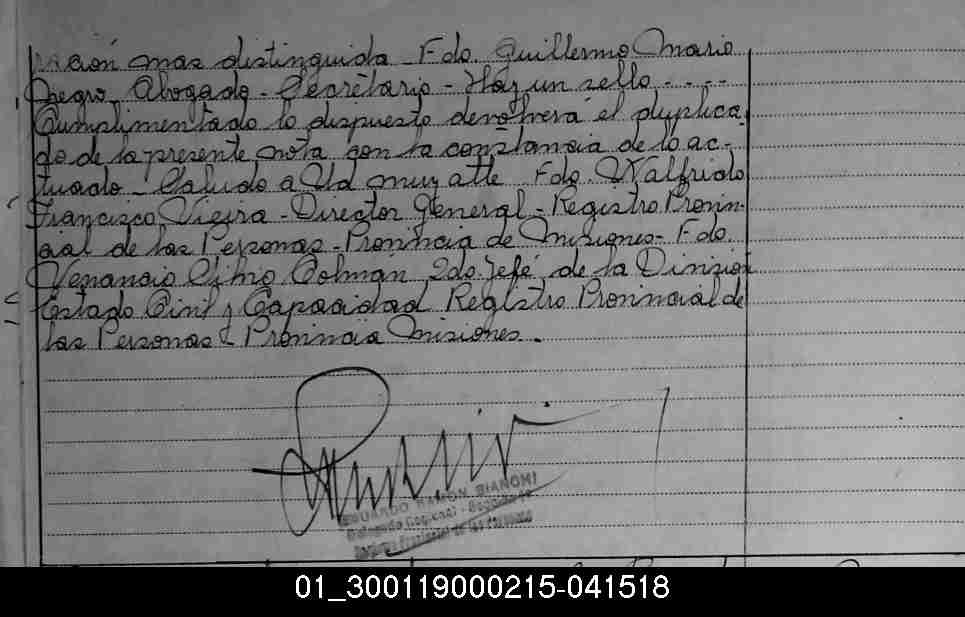 ración mas distinguida - Fdo. Guillermo Mario
Negro. Abogado - Secretario - Hay un sello - - - -
Cumplimentado lo dispuesto devolverá el duplica-
do de la presente nota con la constancia de lo ac-
tuado - Saludo a Ud muy atte Fdo. Walfrido
Francisco Vieira - Director General - Registro Provin-
cial de las Personas - Provincia de Misiones - Fdo.
Venancio Colman 2do. Jefe de la Division
Estado Civil y Capacidad Registro Provincial de
las Personas - Provincia Misiones.
EDUARDO RAMON BIANCHI
Delegado Regional -
Registro Provincial de las Personas
01_300119000215-041518